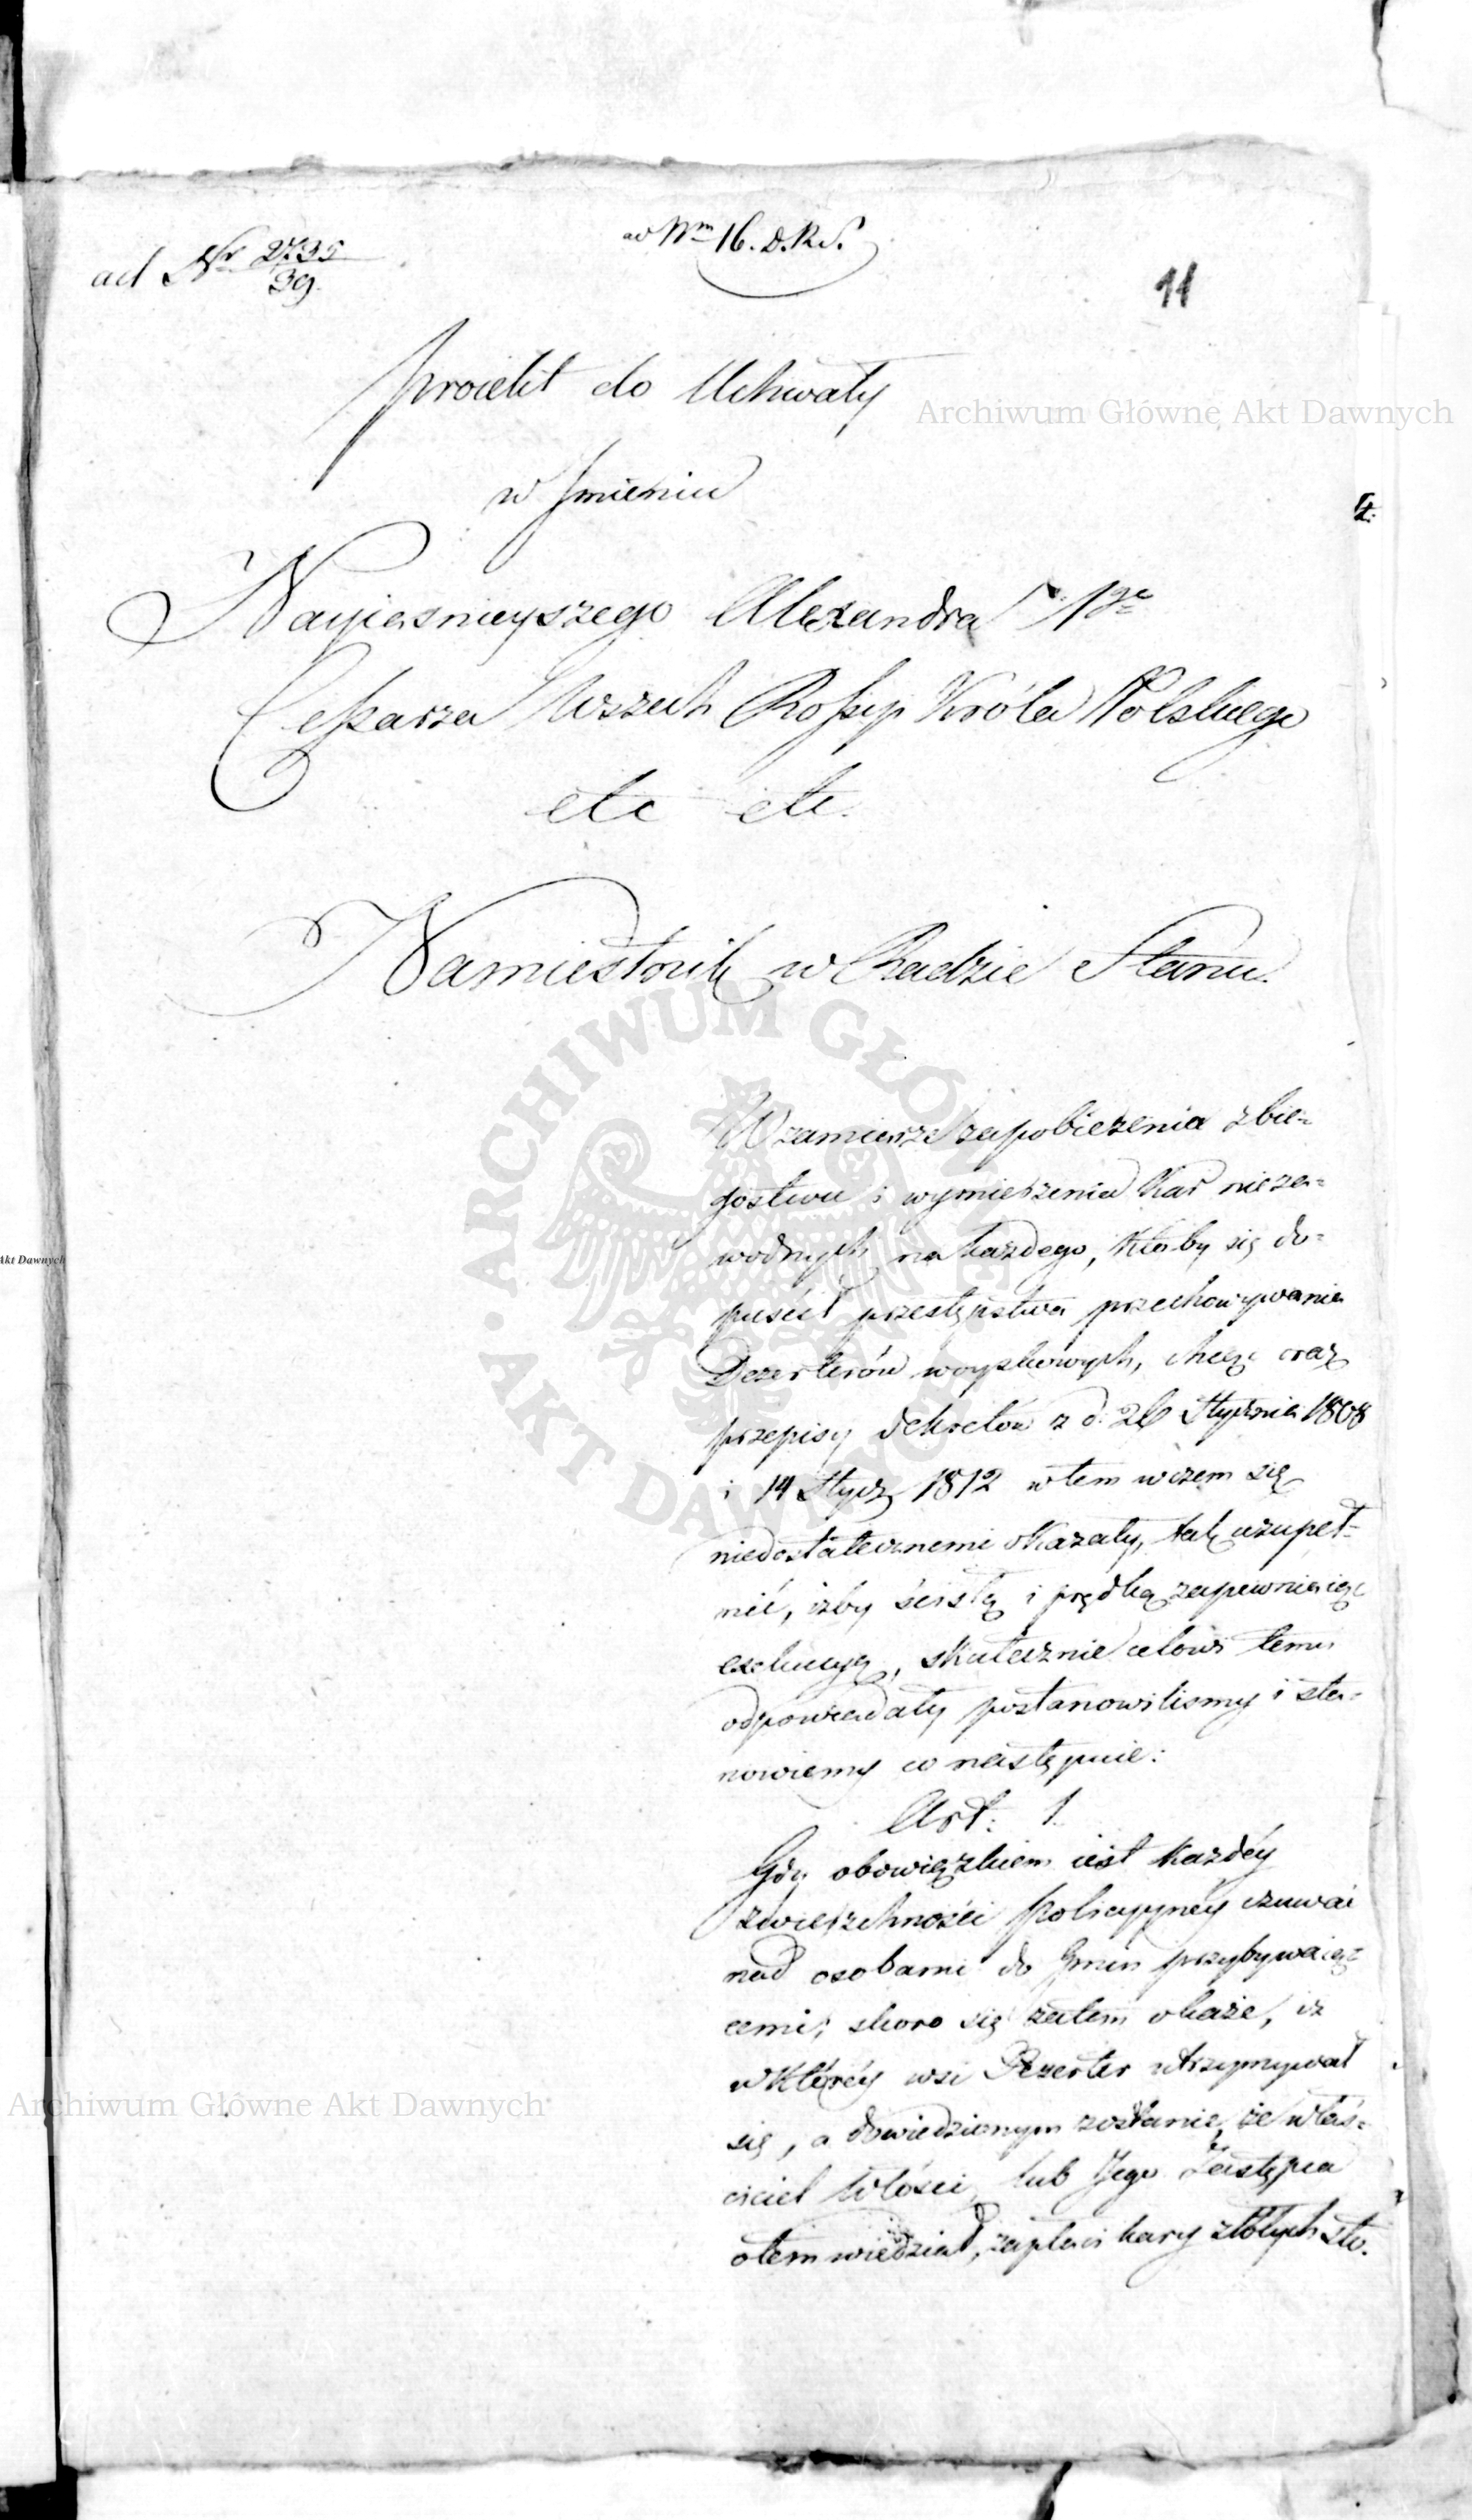 ad Nr 2735/39
ad Nm 16. D.R.S.
11
Proiekt do Uchwały
w Jmieniu
Nayiasnieyszego Alexandra 1go
Cesarza Wszech Rossyi Króla Polskiego
etc etc.
Namiestnik w Radzie Stanu.
W zamiarze zapobieżenia zbie=
gostwu i wymierzenia kar nieza=
wodnych na każdego, ktoby się do=
puścił przestępstwa przechowywania
Dezerterów woyskowych, chcąc oraz
przepisy dekretów z d: 26 Stycznia 1808
i 14 Stycz 1812 w tem w czem się
niedostatecznemi okazały, tak uzupeł=
nić, iżby ścisłą i prędką zapewniaiąc
exekucyą, skutecznie celowi temu
odpowiadały postanowiliśmy i sta=
nowiemy co następuie:
Art: 1.
Gdy obowiązkiem iest każdéy
zwierzchności Policyyney czuwać
nad osobami do Gmin przybywaią=
cemi; skoro się zatem okaże, iż
w któréy wsi Dezerter utrzymywał
się, a dowiedzionym zostanie, że właś=
ciciel włości lub Jego Zastępca
o tem wiedział, zapłaci kary złotych sto.
Archiwum Główne Akt Dawnych
Archiwum Główne Akt Dawnych
Akt Dawnych
ARCHIWUM GŁÓWNE AKT DAWNYCH